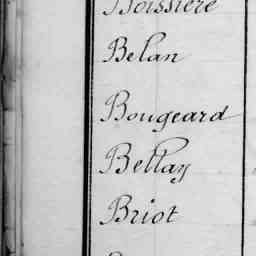 Boissière
Belan
Bougeard
Bellay
Briot